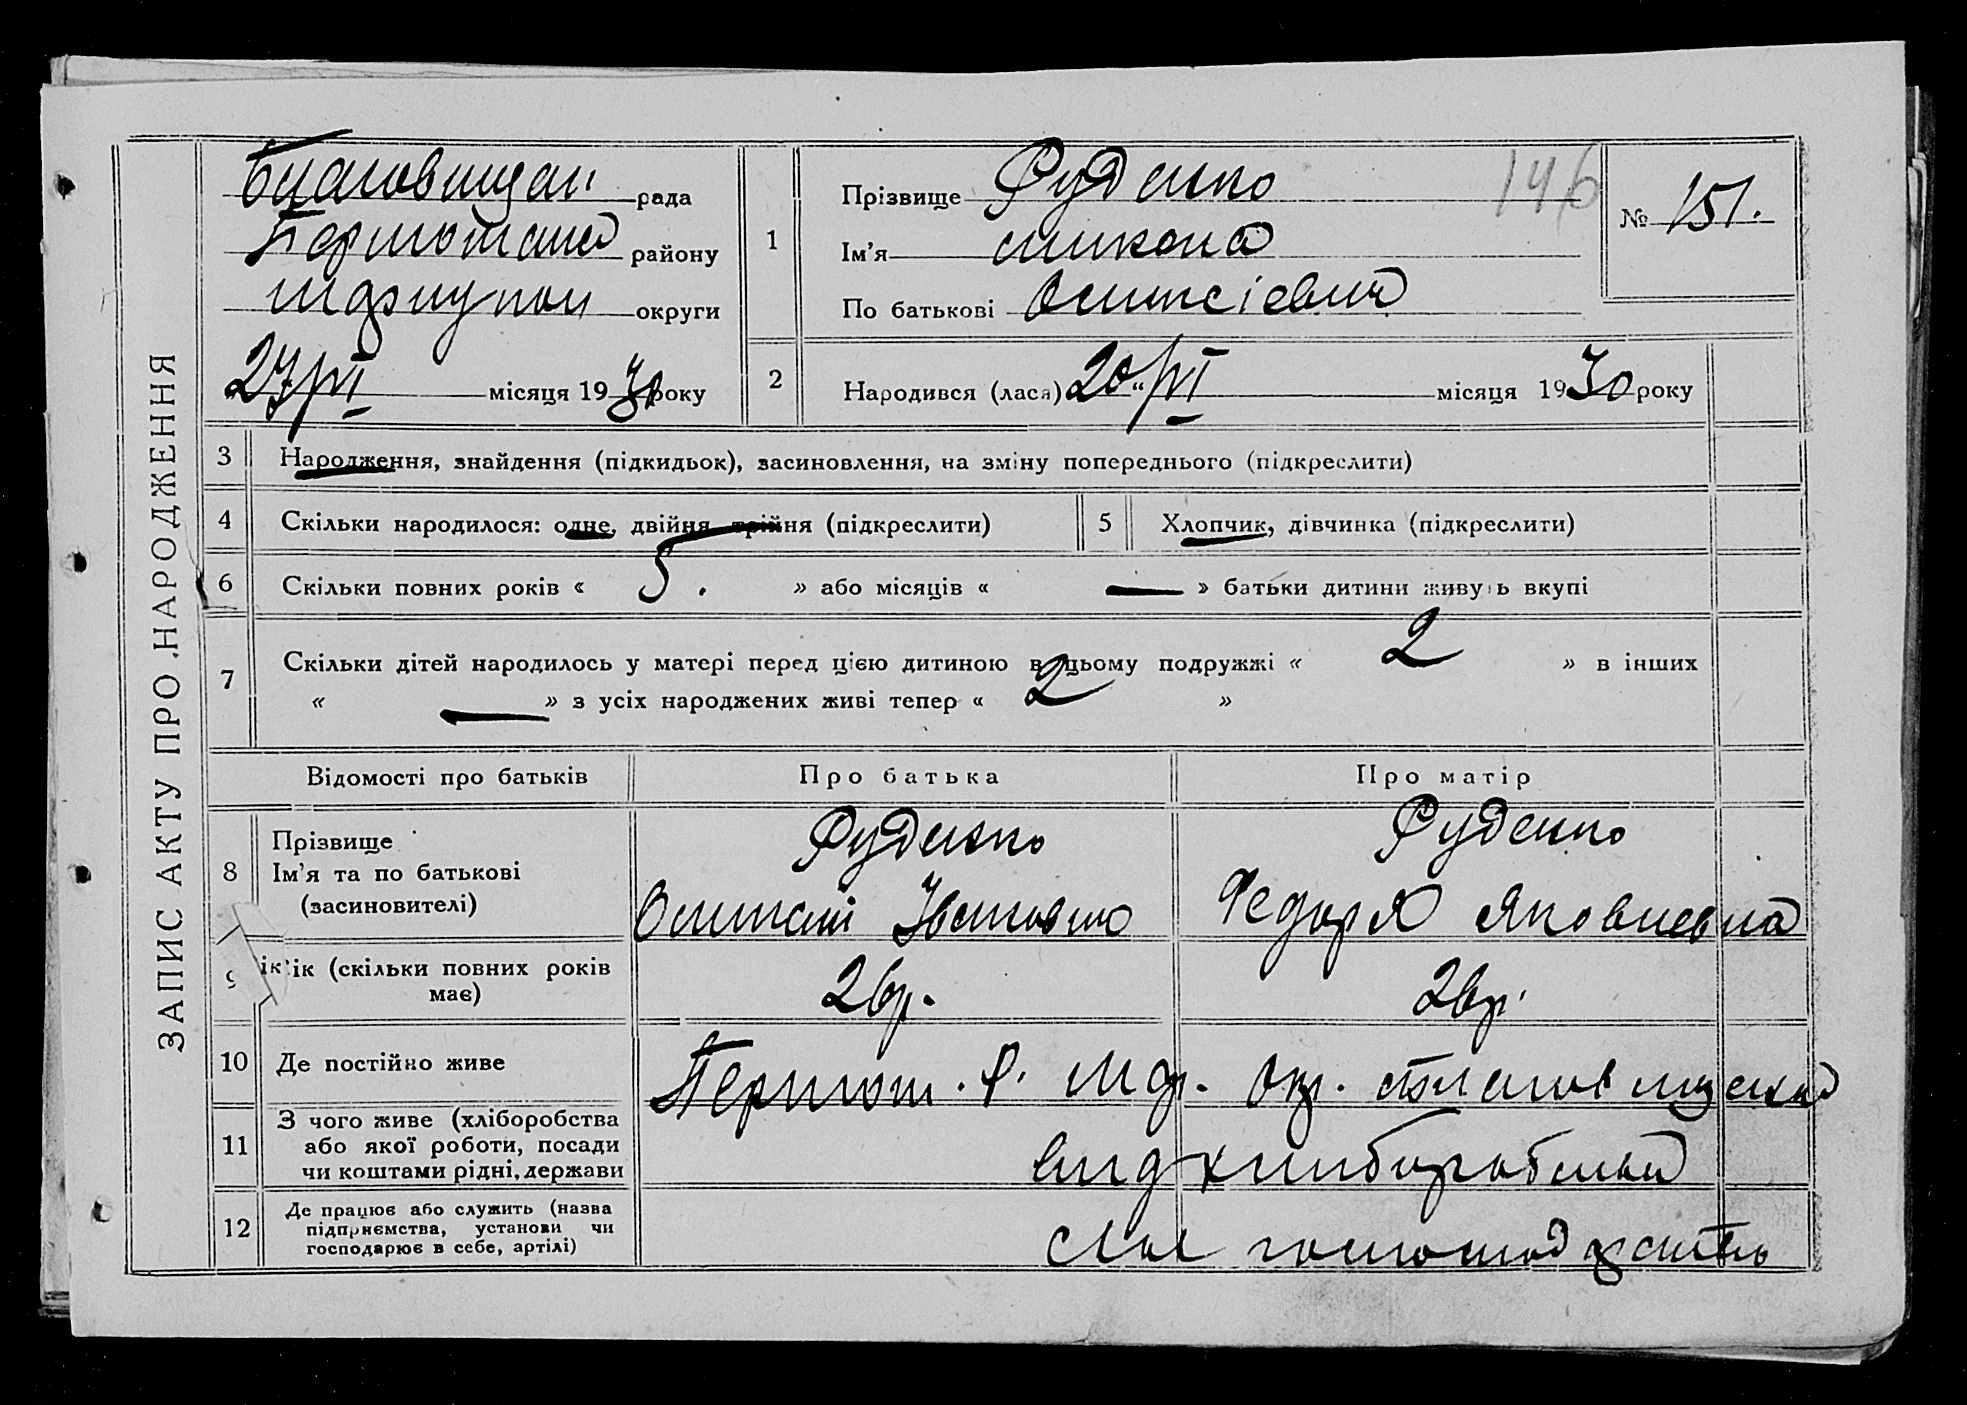 ЗАПИС АКТУ ПРО НАРОДЖЕННЯ
Благовищен рада
району
округи
27/VI місяця 1930 року
1
Прізвище Руденко
146
Ім'я Микола
По батькові
№ 151.
2
Народився (лася) 20/VI місяця 1930 року
3 Народження, знайдення (підкидьок), засиновлення, на зміну попереднього (підкреслити)
4 Скільки народилося: одне, двійня, трійня (підкреслити)
5 Хлопчик, дівчинка (підкреслити)
6 Скільки повних років « 5. » або місяців « — » батьки дитини живуть вкупі
7 Скільки дітей народилось у матері перед цією дитиною в цьому подружжі « 2 » в інших
« — » з усіх народжених живі тепер « 2 »
Відомості про батьків
Про батька
Про матір
8 Прізвище
Ім'я та по батькові
(засиновителі)
Руденко
Іванович
Руденко
Федора Яковлевна
9 ік (скільки повних років
має)
26р.
26р.
10 Де постійно живе
Першот. Р. М др. Окр. Благовищенка
11 З чого живе (хліборобства
або якої роботи, посади
чи коштами рідні, держави
від хлиборобства
12 Де працює або служить (назва
підприємства, установи чи
господарює в себе, артілі)